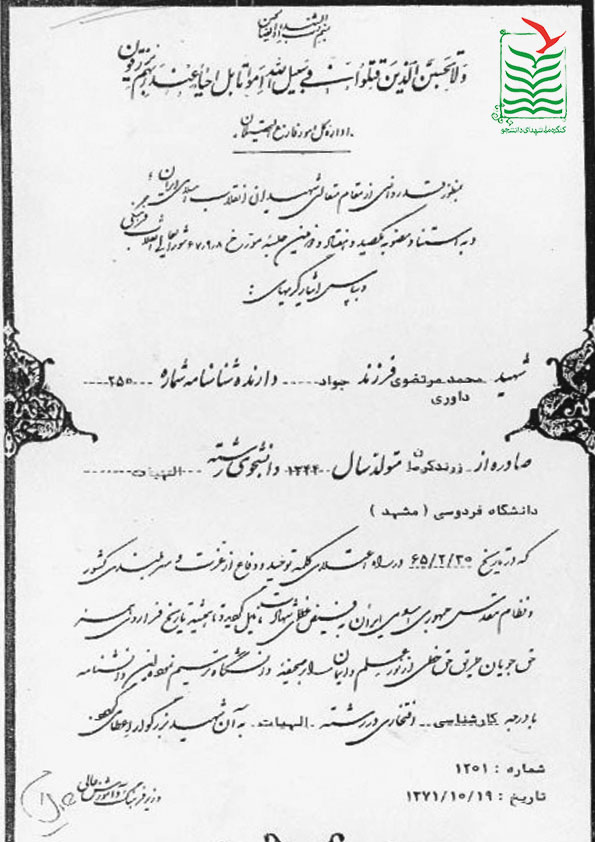 بسم رب الشهداء و الصالحین
ولا تحسبن الذین قتلوا فی سبیل الله امواتا بل احیاء عند ربهم یرزقون
اداره کل امور فارغ التحصیلان
کنگره ملی شهدای دانشجو
بمنظور قدردانی از مقام متعالی شهیدان انقلاب اسلامی ایران
و به استناد مصوبه یکصد و هفتاد و دومین جلسه مورخ ۶۷/۹/۸ شورایعالی انقلاب فرهنگی
و بپاس ایثارگریهای :
شهید محمد مرتضوی فرزند جواد دارنده شناسنامه شماره ۲۵۰
داوری
صادره از زرند کرمان متولد سال ۱۳۴۴ دانشجوی رشته الهیات
دانشگاه فردوسی ( مشهد )
که در تاریخ ۶۵/۲/۳۰ در راه اعتلای کلمه توحید و دفاع از عزت و سربلندی کشور
و نظام مقدس جمهوری اسلامی ایران به فیض عظمای شهادت نایل گردید و تا همیشه تاریخ فرا روی همه
حق جویان طریق حق خطی از نور علم و ایمان بر صحیفه دانشگاه ترسیم نمود این دانشنامه
با درجه کارشناسی افتخاری در رشته الهیات به آن شهید بزرگوار اعطا می گردد.
شماره : ۱۲۰۱
تاریخ : ۱۳۷۱/۱۰/۱۹
وزیر فرهنگ و آموزش عالی